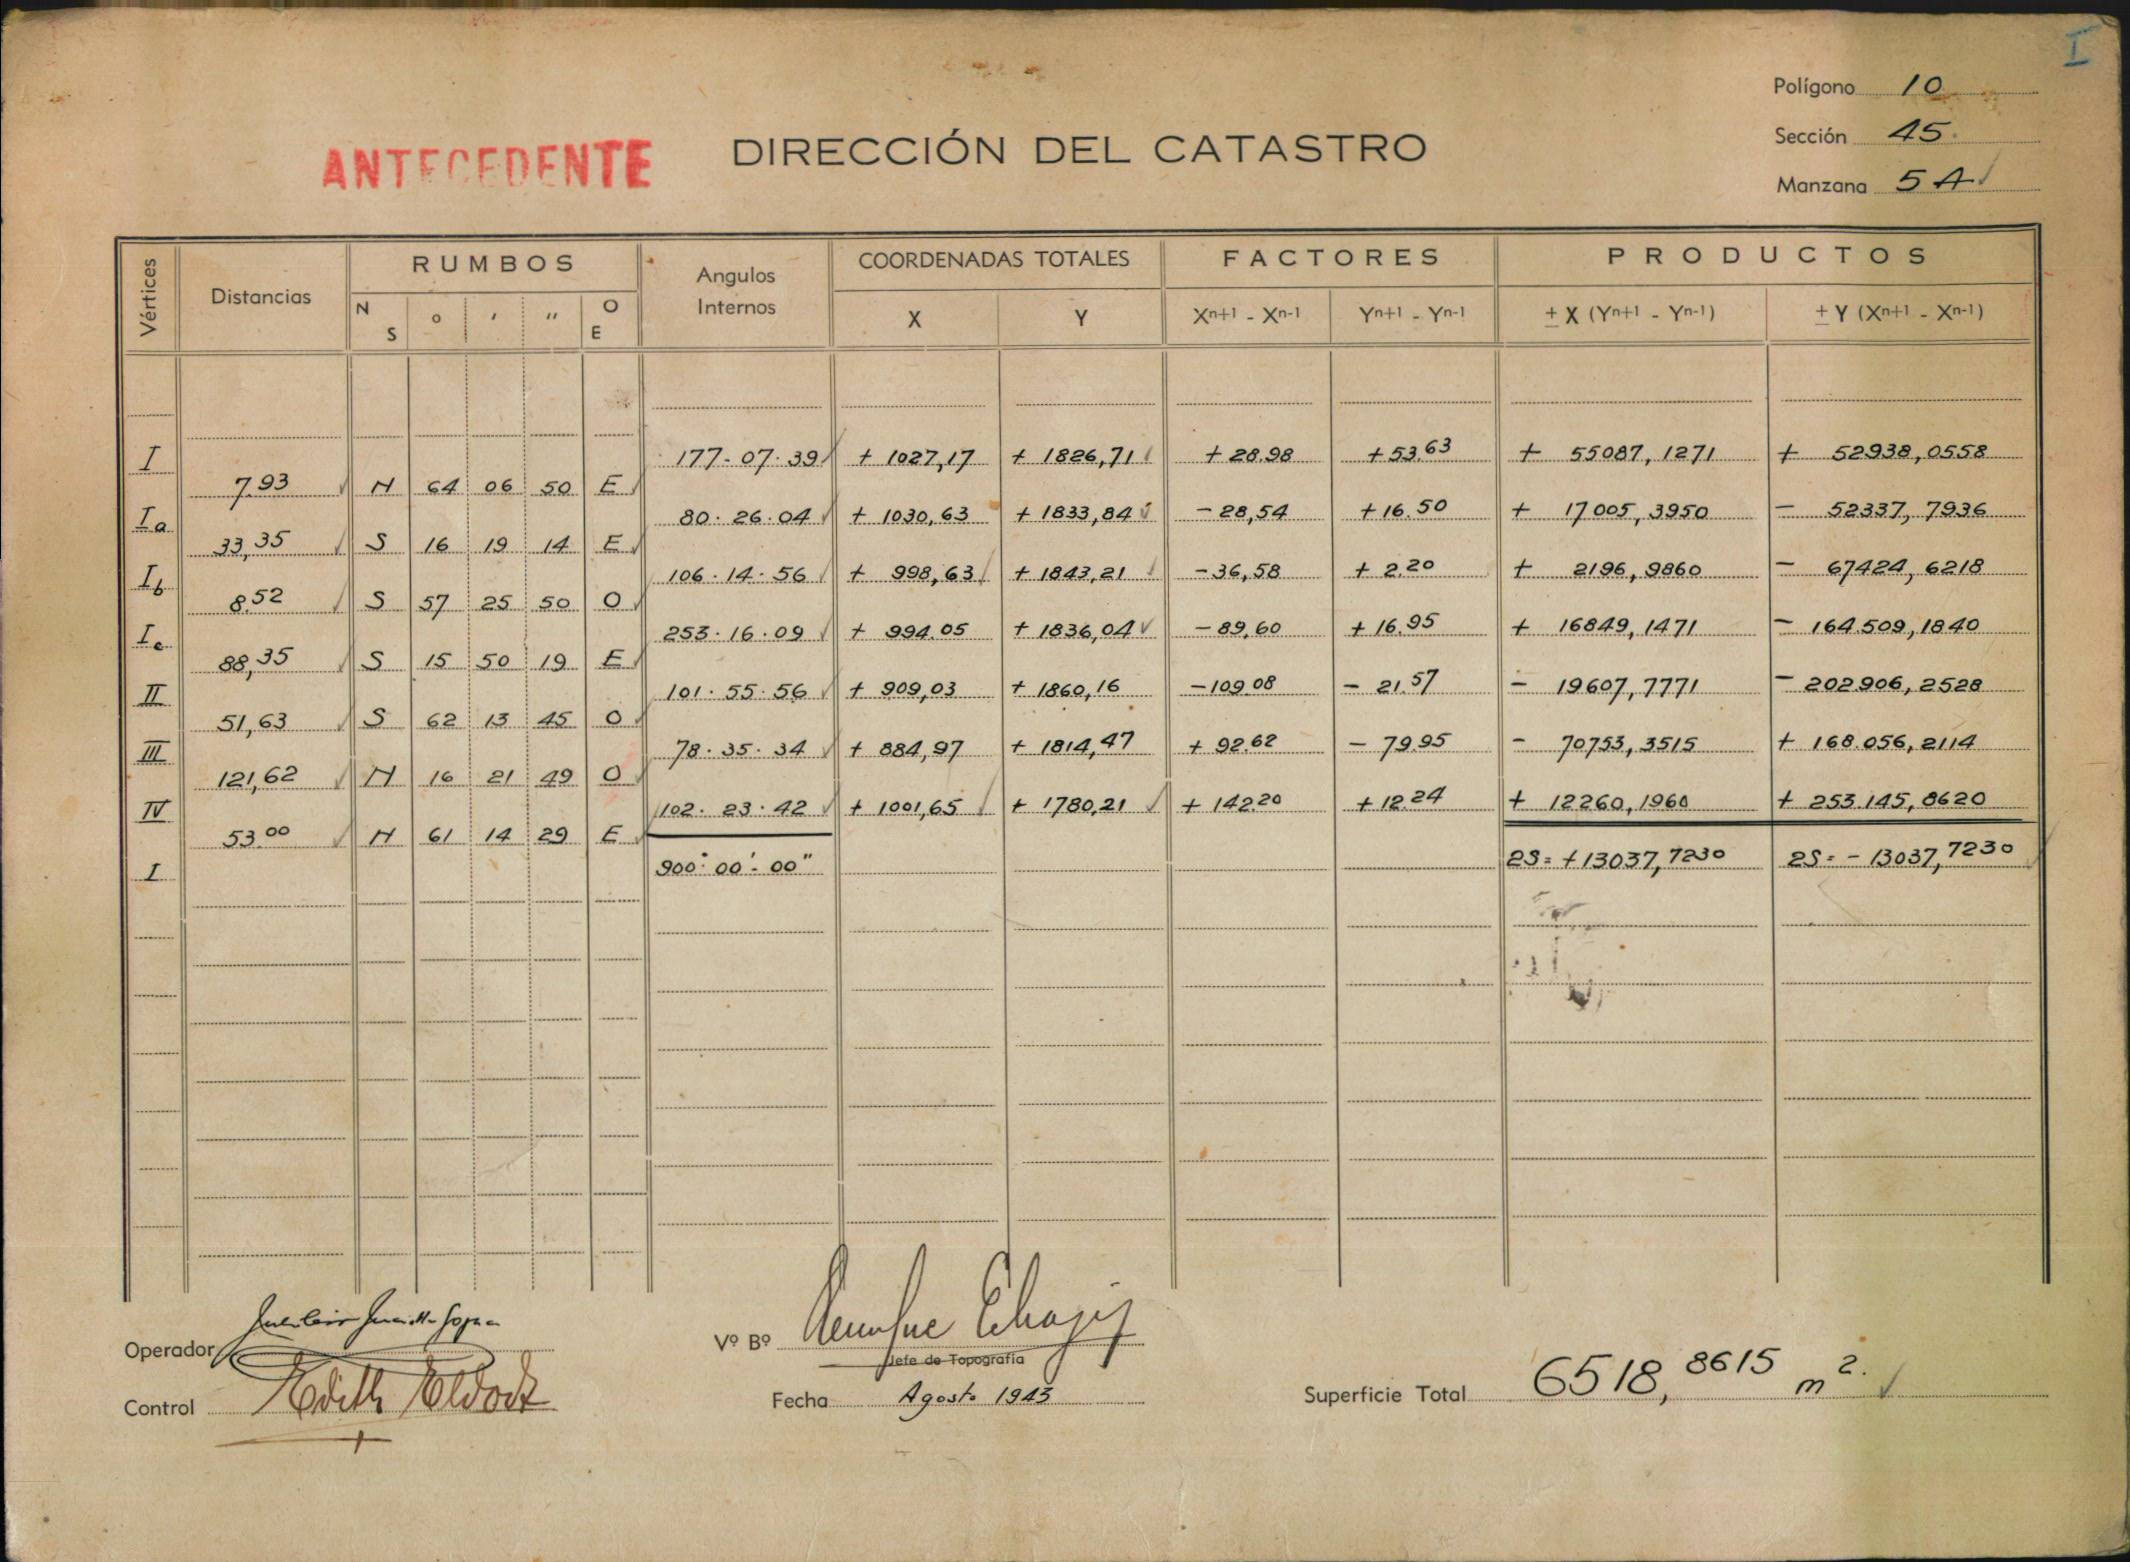 I
Polígono 10
Sección 45
Manzana 5 A
ANTECEDENTE DIRECCIÓN DEL CATASTRO
Vértices Distancias RUMBOS Angulos Internos COORDENADAS TOTALES FACTORES PRODUCTOS
N S o ' '' O E X Y Xn+1 - Xn-1 Yn+1 - Yn-1 ± X (Yn+1 - Yn-1) ± Y (Xn+1 - Xn-1)
I 177-07-39 + 1027,17 + 1826,71 + 28.98 + 53.63 + 55087,1271 + 52938,0558
7.93 N 64 06 50 E
Ia 80-26-04 + 1030,63 + 1833,84 - 28,54 + 16.50 + 17005,3950 - 52337,7936
33,35 S 16 19 14 E
Ib 106-14-56 + 998,63 + 1843,21 - 36,58 + 2.20 + 2196,9860 - 67424,6218
8.52 S 57 25 50 O
Ic 253-16-09 + 994.05 + 1836,04 - 89,60 + 16.95 + 16849,1471 - 164.509,1840
88,35 S 15 50 19 E
II 101-55-56 + 909,03 + 1860,16 - 109.08 - 21.57 - 19607,7771 - 202.906,2528
51,63 S 62 13 45 O
III 78-35-34 + 884,97 + 1814,47 + 92.62 - 79.95 - 70753,3515 + 168.056,2114
121,62 N 16 21 49 O
IV 102-23-42 + 1001,65 + 1780,21 + 142.20 + 12.24 + 12260,1960 + 253.145,8620
53.00 N 61 14 29 E
I 900°00'-00" 2S = + 13037,7230 2S = - 13037,7230
Operador
Vº Bº
Jefe de Topografía
Control
Fecha Agosto 1943
Superficie Total 6518,8615 m2.